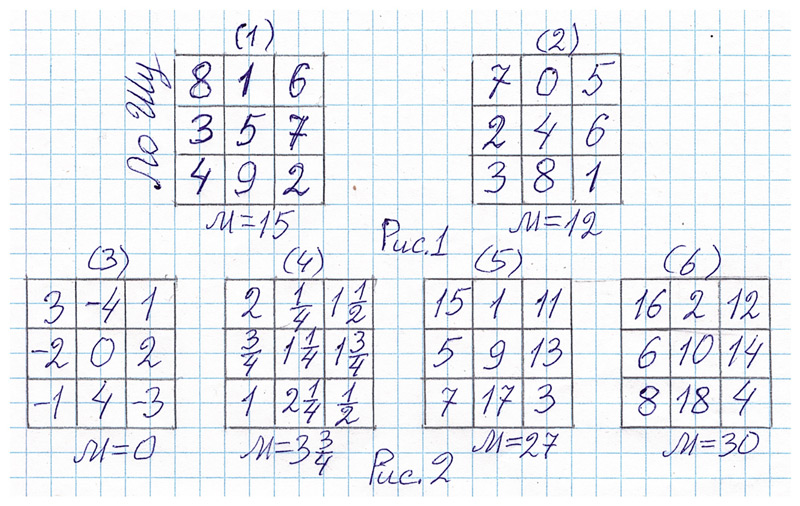 (1) (2)
Ло Шу
8 1 6 7 0 5
3 5 7 2 4 6
4 9 2 3 8 1
М=15 М=12
Рис.1
(3) (4) (5) (6)
3 -4 1 2 1/4 1 1/2 15 1 11 16 2 12
-2 0 2 3/4 1 1/4 1 3/4 5 9 13 6 10 14
-1 4 -3 1 2 1/4 1/2 7 17 3 8 18 4
М=0 М=3 3/4 М=27 М=30
Рис.2